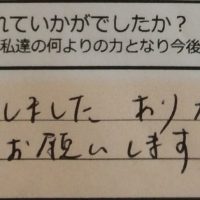 れていかがでしたか？
私達の何よりの力となり今後
しました ありが
お願いします